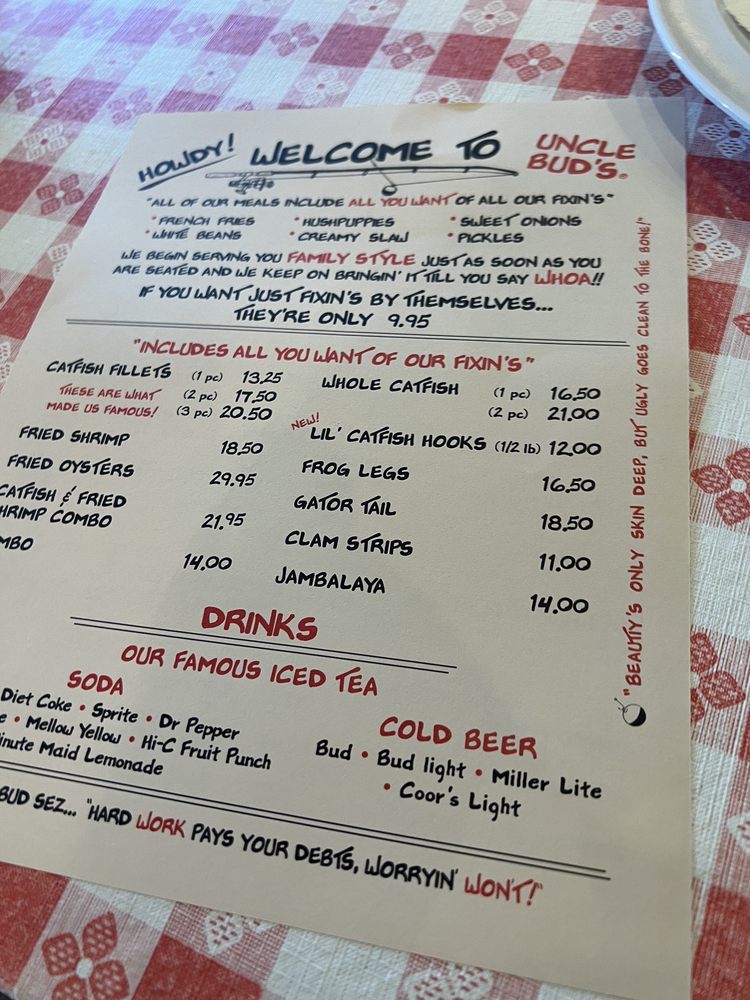 HOWDY! WELCOME TO UNCLE BUD'S®
"ALL OF OUR MEALS INCLUDE ALL YOU WANT OF ALL OUR FIXIN'S"
• FRENCH FRIES • HUSHPUPPIES • SWEET ONIONS
• WHITE BEANS • CREAMY SLAW • PICKLES
WE BEGIN SERVING YOU FAMILY STYLE JUST AS SOON AS YOU
ARE SEATED AND WE KEEP ON BRINGIN' IT TILL YOU SAY WHOA!!
IF YOU WANT JUST FIXIN'S BY THEMSELVES...
THEY'RE ONLY 9.95
"INCLUDES ALL YOU WANT OF OUR FIXIN'S"
CATFISH FILLETS (1 pc) 13.25
THESE ARE WHAT (2 pc) 17.50
MADE US FAMOUS! (3 pc) 20.50
FRIED SHRIMP 18.50
FRIED OYSTERS 29.95
CATFISH & FRIED
HRIMP COMBO 21.95
MBO 14.00
WHOLE CATFISH (1 pc) 16.50
(2 pc) 21.00
NEW!
LIL' CATFISH HOOKS (1/2 lb) 12.00
FROG LEGS 16.50
GATOR TAIL 18.50
CLAM STRIPS 11.00
JAMBALAYA 14.00
DRINKS
OUR FAMOUS ICED TEA
SODA
Diet Coke • Sprite • Dr Pepper
e • Mellow Yellow • Hi-C Fruit Punch
inute Maid Lemonade
COLD BEER
Bud • Bud light • Miller Lite
• Coor's Light
BUD SEZ... "HARD WORK PAYS YOUR DEBTS, WORRYIN' WON'T!"
"BEAUTIY'S ONLY SKIN DEEP, BUT UGLY GOES CLEAN TO THE BONE!"